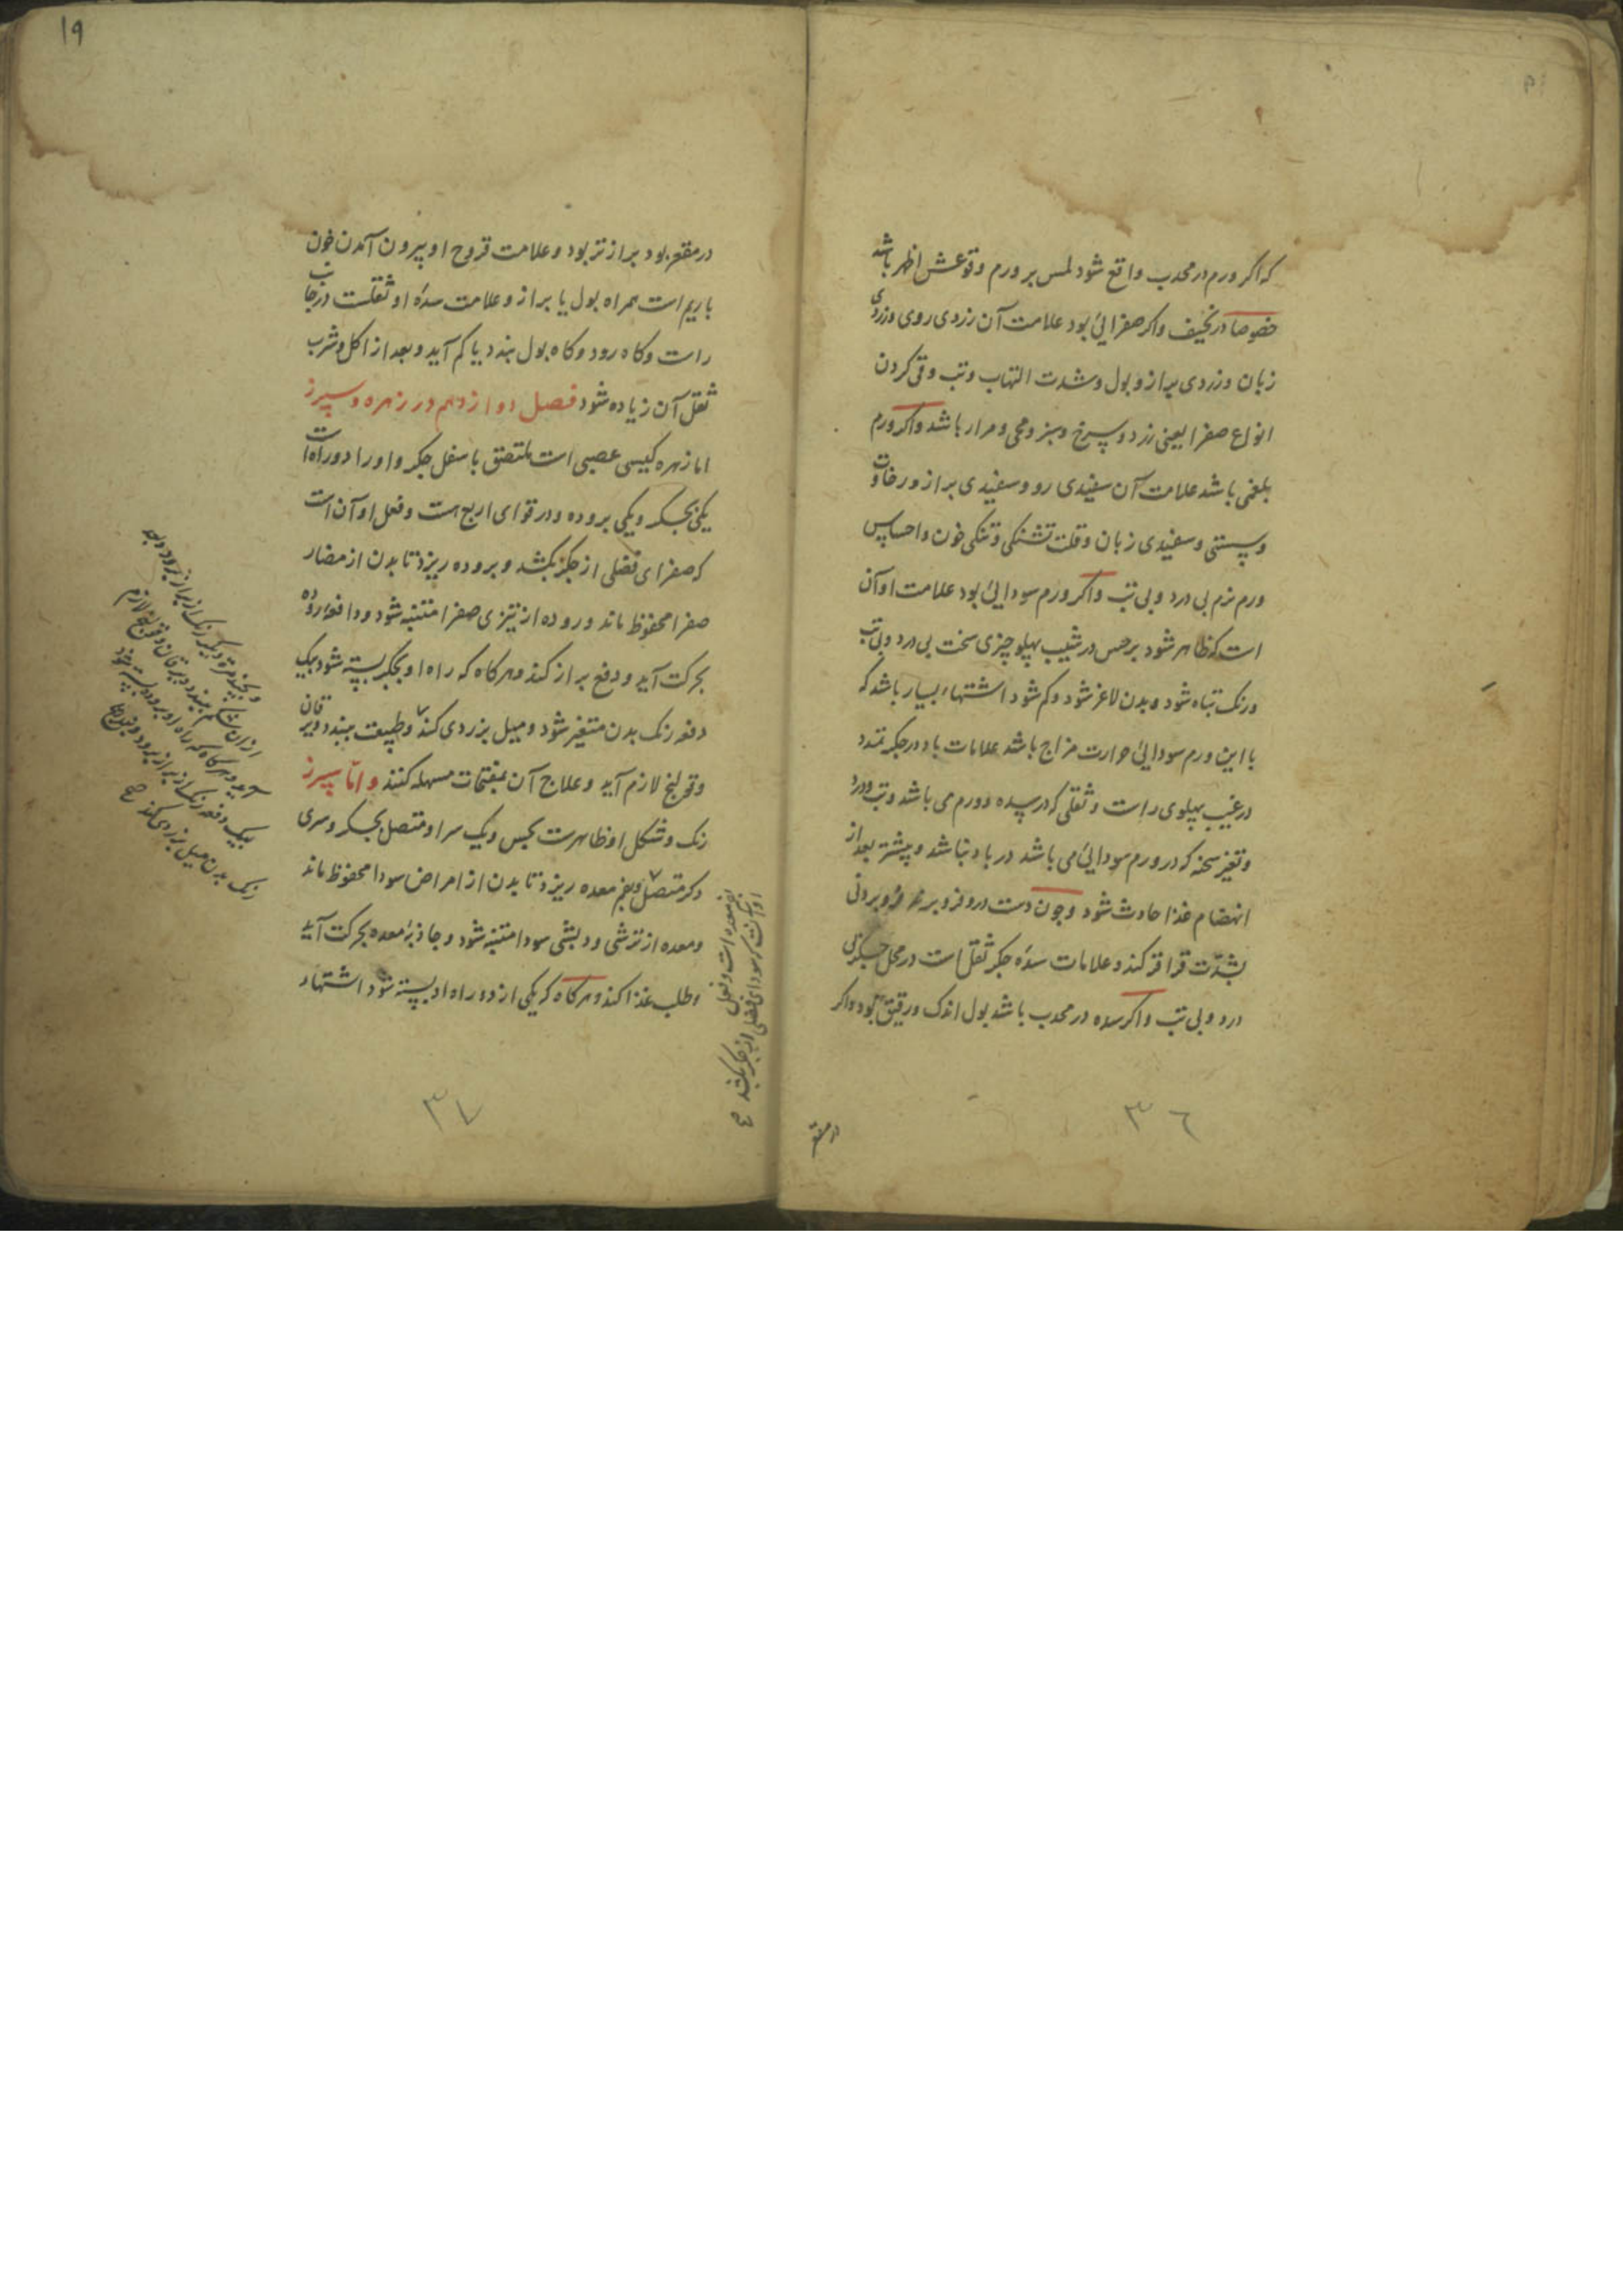 که اگر ورم در محدب واقع شود لمس بر ورم وقوعش اظهر باشد
خصوصا در نحیف واگر صفرائی بود علامت آن زردی روی وزردی
زبان وزردی براز وبول وشدت التهاب وتب وقی کردن
انواع صفرا یعنی زرد وسرخ وسبز ومحی ومرار باشد واگر ورم
بلغمی باشد علامت آن سفیدی رو وسفیدی براز ورخاوت
وسستی وسفیدی زبان وقلت تشنگی وتنگی خون واحساس
ورم نرم بی درد وبی تب واگر ورم سودایی بود علامت او آن
است که ظاهر شود بر حس در شیب پهلو چیزی سخت بی درد وبی تب
ورنک تباه شود وبدن لاغر شود وکم شود اشتهاء بسیار باشد که
با این ورم سودایی حرارت مزاج باشد علامات باد در جگر تمدد
در غیب پهلوی راست وثقلی که در سده وورم می باشد وتب ودرد
وتغیر سحنه که در ورم سودایی می باشد در باد نباشد وپیشتر بعد از
انهضام غذا حادث شود وچون دست درو فرو برند فرو برونی
بشدت قراقر کند وعلامات سده جگر ثقل است در محل جگر بی
درد وبی تب واگر سده در محدب باشد بول اندک ورقیق بود واگر
در مقعر
٣٦
١٩
در مقعر بود براز تر بود وعلامت قروح او بیرون آمدن خون
باریم است همراه بول یا براز وعلامت سده او ثقلست در جانب
راست وگاه رود وگاه بول بندد یا کم آید وبعد از اکل وشرب
ثقل آن زیاده شود فصل دوازدهم در زهره وسپرز
اما زهره کیسی عصبی است ملتصق باسفل جگر واورا دو راه است
یکی بجگر ویکی بروده ودر قوای اربع هست وفعل او آن است
که صفرای فضلی از جگر بکشد وبروده ریزد تا بدن از مضار
صفرا محفوظ ماند وروده از تیزی صفرا متنبه شود ودافعه روده
بحرکت آید ودفع براز کند وهرگاه که راه او بجگر بسته شود بیک
دفعه رنک بدن متغیر شود ومیل بزردی کند وطبیعت ببندد ویرقان
وقولنج لازم آید وعلاج آن بمفتحات مسهله کنند واما سپرز
رنک وشکل او ظاهرست بحس ویک سر او متصل بجگر وسری
دگر متصل وبفم معده ریزد تا بدن از امراض سودا محفوظ ماند
ومعده از ترشی ودبشی سودا متنبه شود وجاذبه معده بحرکت آید
وطلب غذا کند وهرگاه که یکی از دو راه او بسته شود اشتهاء
بفم معده است وفعل
او آنست که سودای فضلی از جگر بکشد صح
وبچند مرة دیگر رنک از براز برود وبعد
از آن شکم ببندد ویرقان وقولنج لازم
آید وهرگاه که راه او بروده بسته شود
بیک دفعه رنک از براز برود
رنک بدن میل بزردی کند صح
٣٧